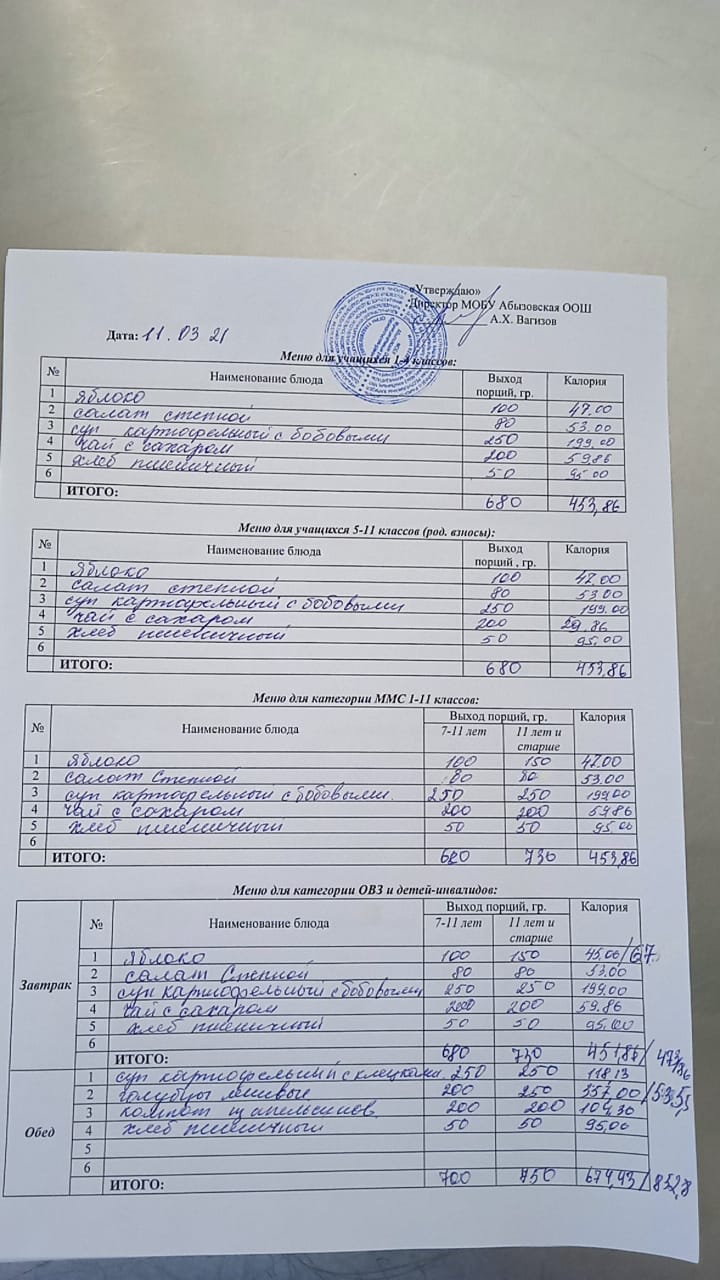 «Утверждаю»
Директор МОБУ Абызовская ООШ
А.Х. Вагизов
Дата: 11.03 21
Меню для учащихся 1-4 классов:
№ Наименование блюда Выход порций, гр. Калория
1 яблоко 100 47.00
2 салат степной 80 53.00
3 суп картофельный с бобовыми 250 199,00
4 чай с сахаром 200 59.86
5 хлеб пшеничный 50 95.00
6
ИТОГО: 680 453,86
Меню для учащихся 5-11 классов (род. взносы):
№ Наименование блюда Выход порций , гр. Калория
1 яблоко 100 47.00
2 салат степной 80 53.00
3 суп картофельный с бобовыми 250 199.00
4 чай с сахаром 200 59.86
5 хлеб пшеничный 50 95.00
6
ИТОГО: 680 453,86
Меню для категории ММС 1-11 классов:
№ Наименование блюда Выход порций, гр. Калория
7-11 лет 11 лет и старше
1 яблоко 100 150 47.00
2 салат Степной 80 80 53.00
3 суп картофельный с бобовыми. 250 250 199,00
4 чай с сахаром 200 200 59.86
5 хлеб пшеничный 50 50 95.00
6
ИТОГО: 680 730 453,86
Меню для категории ОВЗ и детей-инвалидов:
№ Наименование блюда Выход порций, гр. Калория
7-11 лет 11 лет и старше
Завтрак
1 яблоко 100 150 45.00/67.
2 салат Степной 80 80 53.00
3 суп картофельный с бобовыми 250 250 199,00
4 чай с сахаром 200 200 59.86
5 хлеб пшеничный 50 50 95.00
6
ИТОГО: 680 730 451,86/473,86
Обед
1 суп картофельный с клецками. 250 250 118,13
2 голубцы ленивые 200 250 357,00/535,5
3 компот из апельсинов 200 200 104,30
4 хлеб пшеничный 50 50 95,00
5
6
ИТОГО: 700 750 674,43/852,8